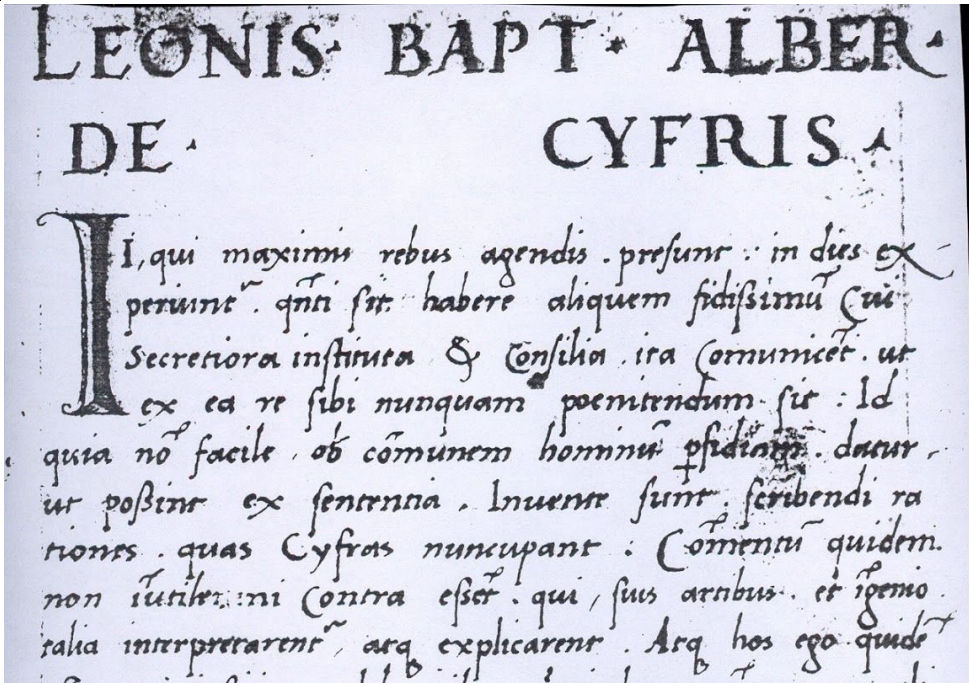 LEONIS · BAPT · ALBER ·
DE · CYFRIS ·
II, qui maximis rebus agendis . presunt : in dies ex
periunt᷑ . qn̄ti sit habere aliquem fidissimū Cui
Secretiora instituta & Consilia . ita Comunicēt . ut
ex ea re sibi nunquam poenitendum sit : Id
quia nō facile . ob cōmunem hominū ꝑfidiam . datur ,
ut poßint ex sententia . Invente sunt . scribendi ra
tiones . quas Cyfras nuncupant : Cōmentū quidem .
non īutile: ni Contra eßēt . qui , suis artibus . et īgenio
talia interpretarent᷑ , atq explicarent . Atq hos ego quidē